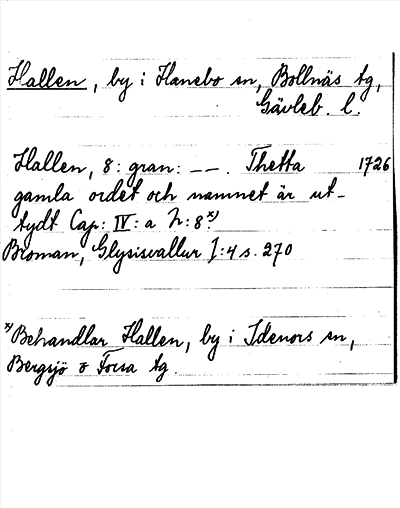 Hallen, by i Hanebo sn, Bollnäs tg,
Gävleb. l.
Hallen, 8: gran: – – . Thetta 1726
gamla ordet och namnet är ut-
tydt Cap: IV: a N: 8.x)
Broman, Glysisvallur I:4 s. 270
x) Behandlar Hallen, by i Idenors sn,
Bergsjö o Forsa tg.